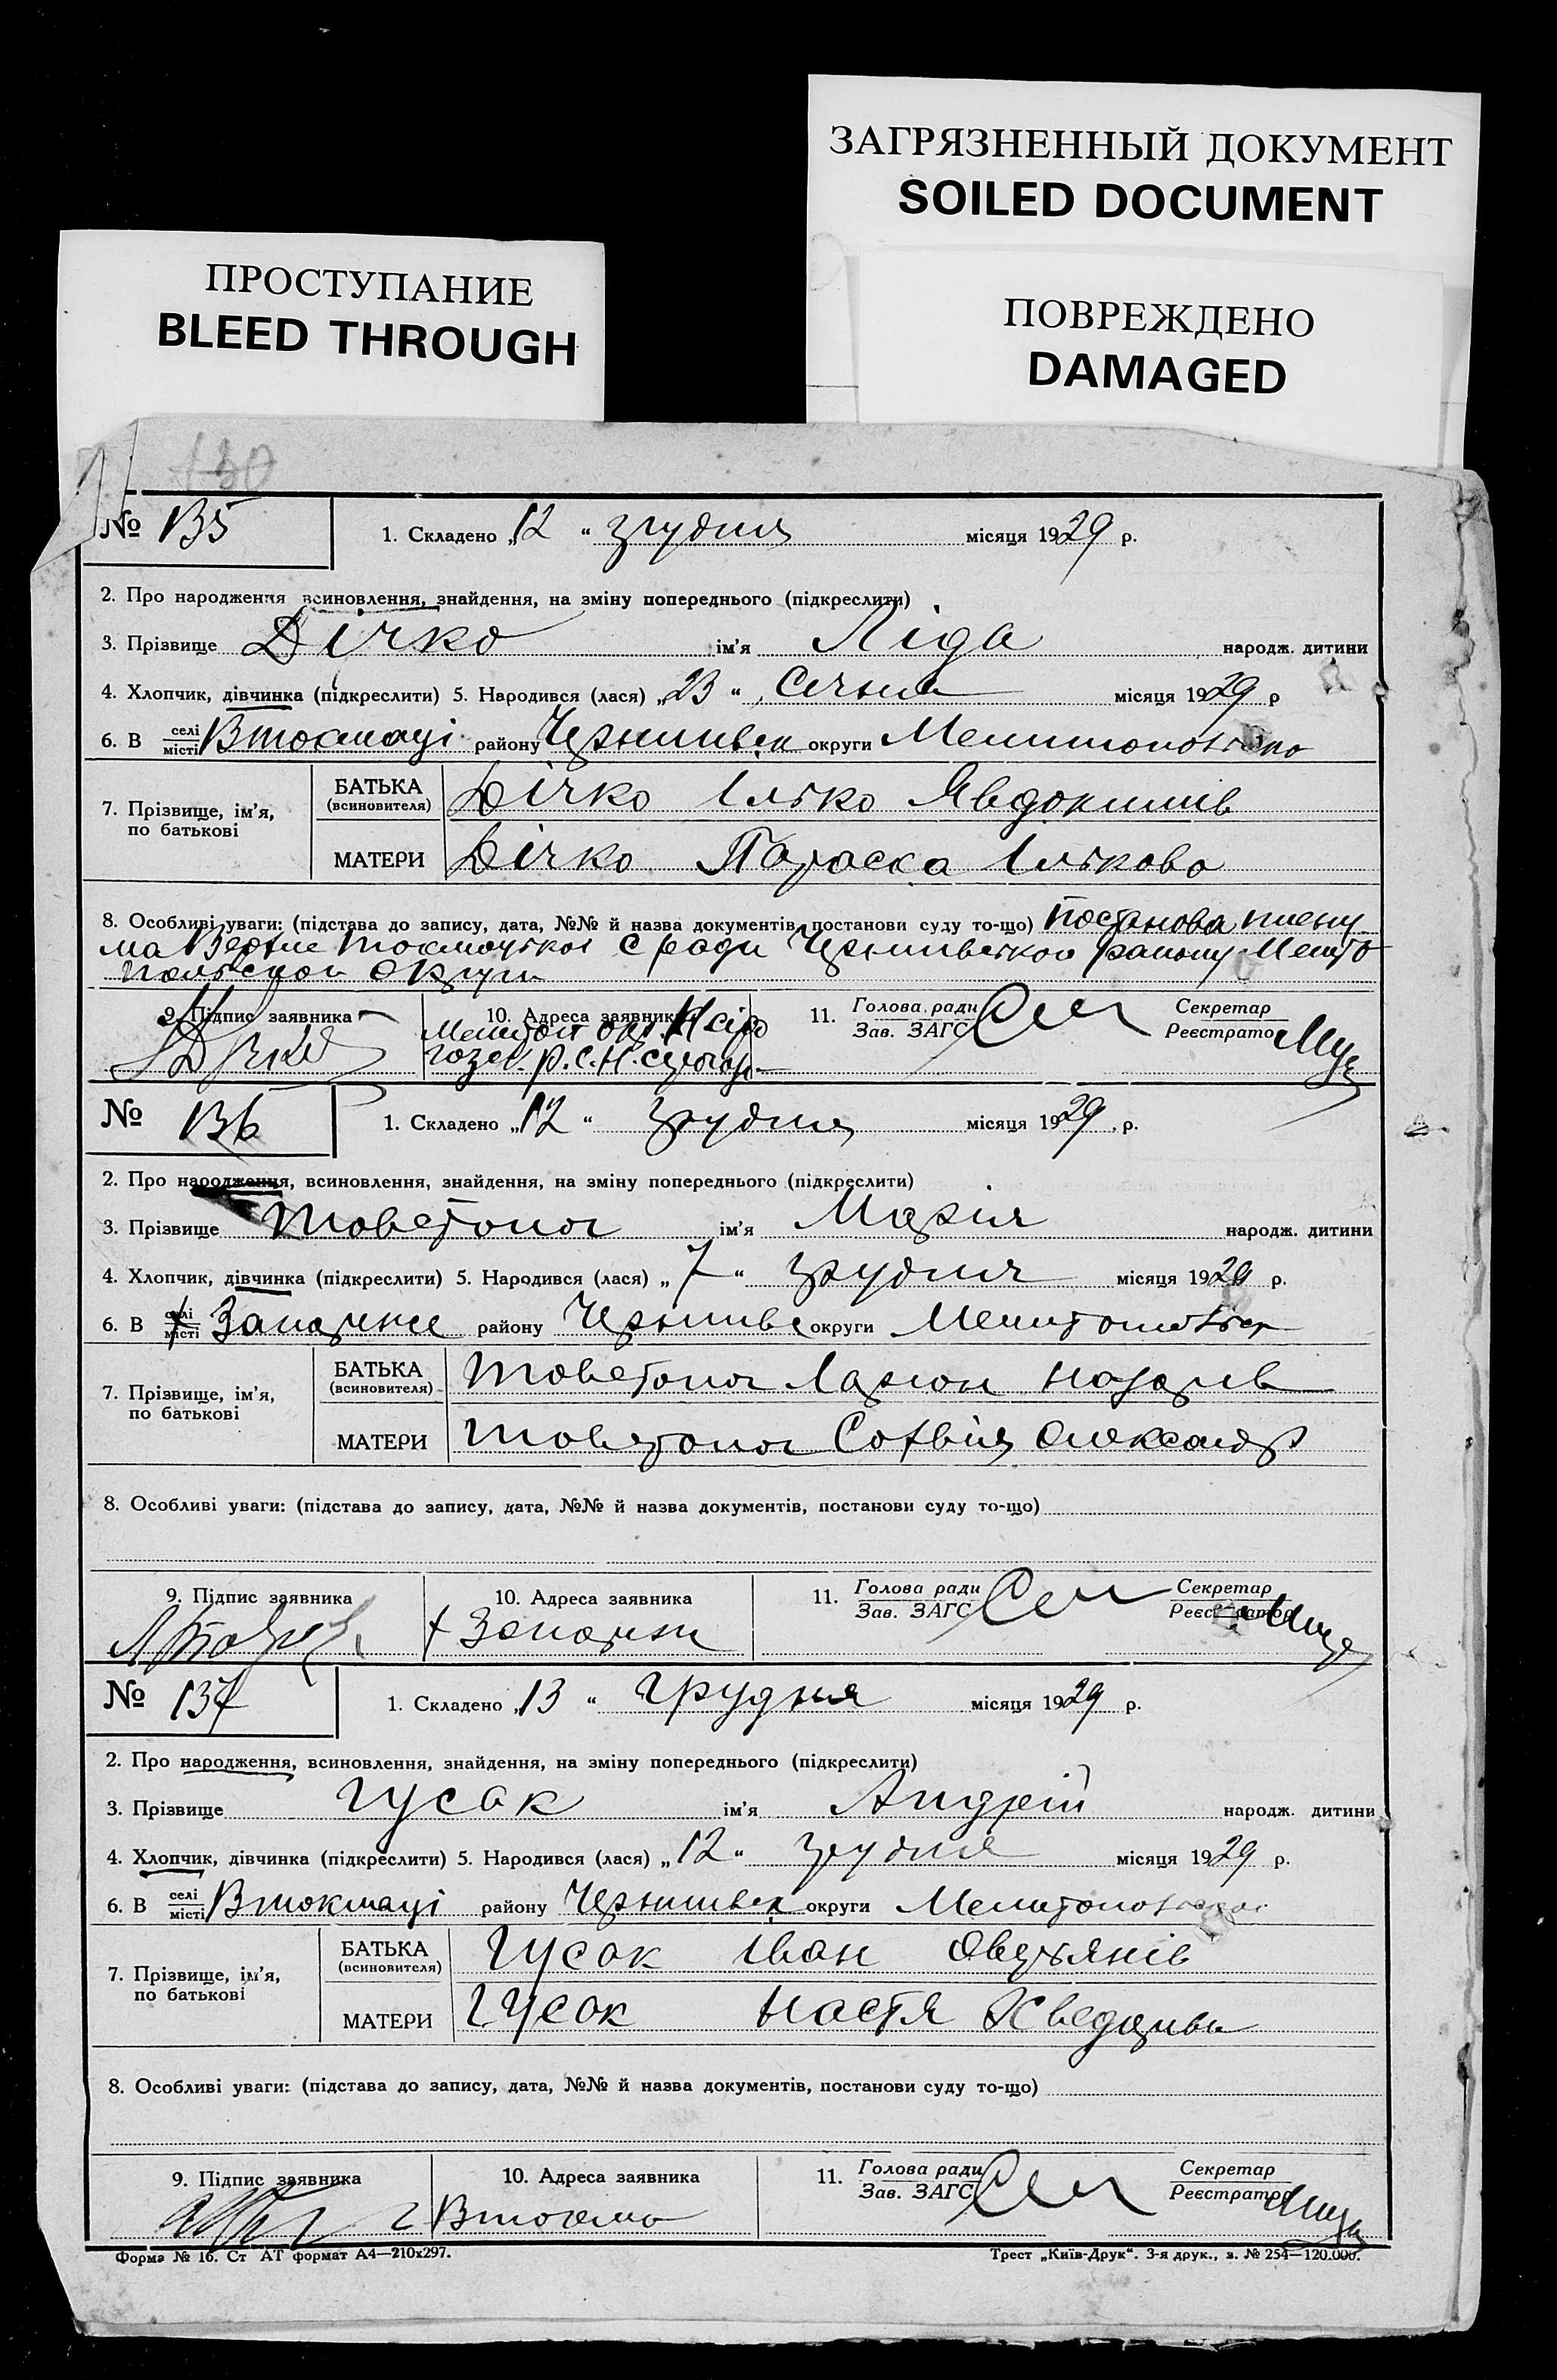 ЗАГРЯЗНЕННЫЙ ДОКУМЕНТ
SOILED DOCUMENT
ПРОСТУПАНИЕ
BLEED THROUGH
ПОВРЕЖДЕНО
DAMAGED
130
№ 135 1. Складено „12 “ грудня місяця 1929 р.
2. Про народження всиновлення, знайдення, на зміну попереднього (підкреслити)
3. Прізвище Дічко ім'я Ліда народж. дитини
4. Хлопчик, дівчинка (підкреслити) 5. Народився (лася) „23 “ Січня місяця 1929 р
6. В селі місті Втокмаці району Чернишівск округи
7. Прізвище, ім'я, по батькові БАТЬКА (всиновителя) Дічко Ілько Явдокимів
МАТЕРИ Дічко ПараскаІлькова
8. Особливі уваги: (підстава до запису, дата, №№ й назва документів, постанови суду то-що) Постанова плену
ма Верхне Токмоцкоі с ради району Меліто
польскои Округи
9. Підпис заявника 10. Адреса заявника 11. Голова ради Зав. ЗАГС Секретар Реєстратор
№ 136 1. Складено „12 “ грудня місяця 1929 р.
2. Про народження, всиновлення, знайдення, на зміну попереднього (підкреслити)
3. Прізвище Товстоног ім'я Марія народж. дитини
4. Хлопчик, дівчинка (підкреслити) 5. Народився (лася) „7 “ грудня місяця 1929 р.
6. В селі місті району округи
7. Прізвище, ім'я, по батькові БАТЬКА (всиновителя) Товстоног Ларіон Назарів
МАТЕРИ Товстоног Софвія Олександр
8. Особливі уваги: (підстава до запису, дата, №№ й назва документів, постанови суду то-що)
9. Підпис заявника 10. Адреса заявника 11. Голова ради Зав. ЗАГС Секретар Реєстратор
№ 137 1. Складено „13 “ грудня місяця 1929 р.
2. Про народження, всиновлення, знайдення, на зміну попереднього (підкреслити)
3. Прізвище Гусак ім'я Андрій народж. дитини
4. Хлопчик, дівчинка (підкреслити) 5. Народився (лася) „12 “ грудня місяця 1929 р.
6. В селі місті Втокмаці району Чернишівск округи
7. Прізвище, ім'я, по батькові БАТЬКА (всиновителя) Гусак Іван
МАТЕРИ Гусак Настя
8. Особливі уваги: (підстава до запису, дата, №№ й назва документів, постанови суду то-що)
9. Підпис заявника 10. Адреса заявника 11. Голова ради Зав. ЗАГС Секретар Реєстратор
Форма № 16. Ст АТ формат А4—210х297. Трест „Київ-Друк“. 3-я друк., з. № 254—120.000.